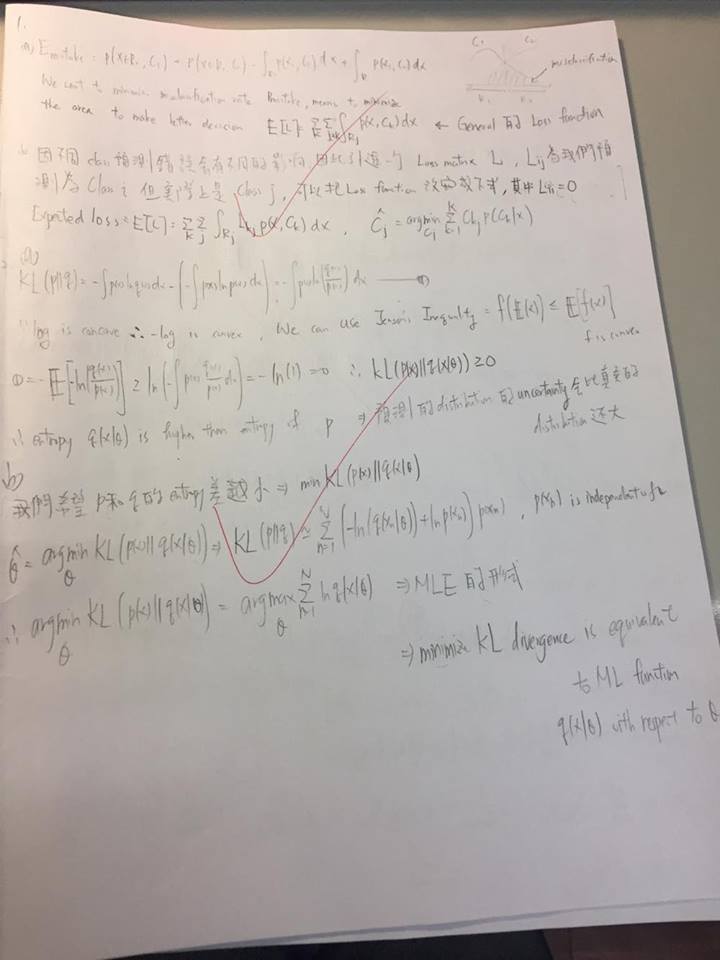 1.
(a) E mistake = p(x∈R₂, C₁) + p(x∈R₁, C₂) = ∫_{R₂} p(x, C₁) dx + ∫_{R₁} p(x, C₂) dx
C₁ C₂
misclassification
R₁ R₂
We want to minimize misclassification rate Pmistake, means to minimize
the area to make better decision E[L] = Σ_k Σ_j ∫_{Rj} p(x, C_k) dx ← General 的 Loss function
b. 因不同 class 預測錯誤會有不同的影響, 因此引進一個 Loss matrix L, Lij 為我們預
測為 Class i 但實際上是 Class j, 可以把 Loss function 改寫成下式, 其中 Lii = 0
Expected loss = E[L] = Σ_k Σ_j ∫_{Rj} L_kj p(x, C_k) dx , Ĉ_j = argmin_{Cj} Σ_{k=1}^{K} C_kj p(C_k|x)
2. (a)
KL(p||q) = -∫p(x) ln q(x) dx - (-∫p(x) ln p(x) dx) = -∫p(x) ln(q(x)/p(x)) dx —— ①
∵ log is concave ∴ -log is convex, We can use Jensen's Inequality = f(E(x)) ≤ E[f(x)]
f is convex
① = - E[-ln(q(x)/p(x))] ≥ ln(-∫p(x) q(x)/p(x) dx) = -ln(1) = 0 ∴ KL(p(x)||q(x|θ)) ≥ 0
∴ entropy q(x|θ) is higher than entropy of p ⇒ 預測的 distribution 的 uncertainty 會比真實的
distribution 還大
b)
我們希望 p 和 q 的 entropy 差越小 ⇒ min KL(p(x)||q(x|θ)
θ̂ = argmin_θ KL(p(x)||q(x|θ)) ⇒ KL(p||q) ≃ Σ_{n=1}^{N} (-ln(q(x_n|θ)) + ln p(x_n)) p(x_n) , p(x_n) is independent
∴ argmin_θ KL(p(x)||q(x|θ) = argmax_θ Σ_{n=1}^{N} ln q(x|θ) ⇒ MLE 的形式
⇒ minimize KL divergence is equivalent
to ML function
q(x|θ) with respect to θ